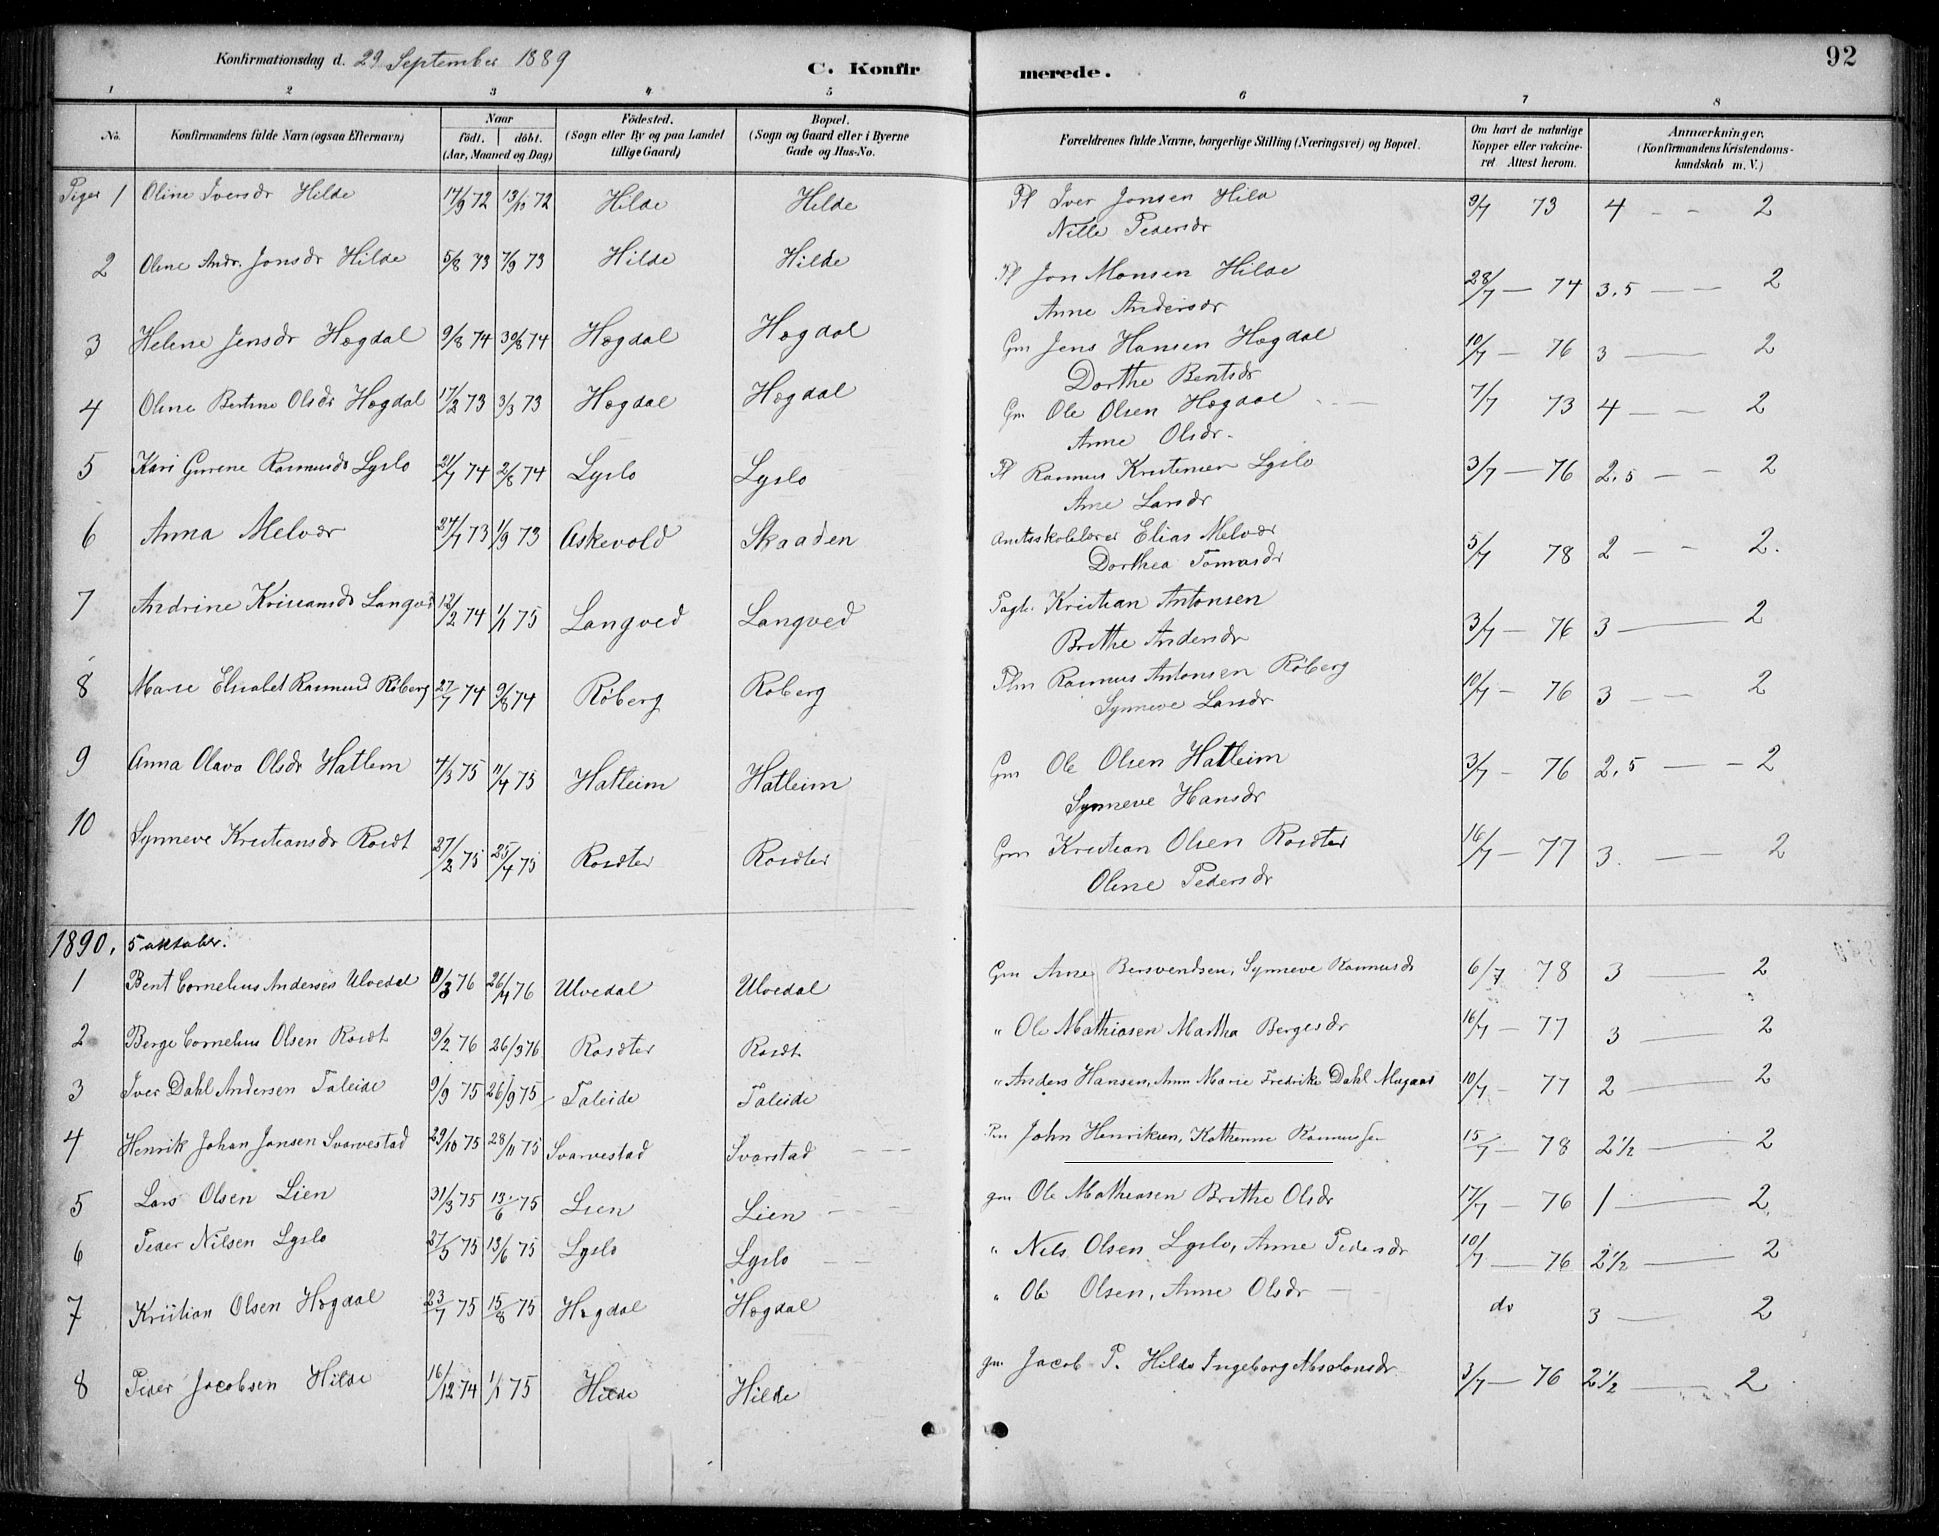 92
Konfirmationsdag d. 29 September 1889
C. Konfirmerede.
1 2 3 4 5 6 7 8
No. Konfirmandens fulde Navn (ogsaa Efternavn) Naar födt. döbt. (Aar, Maaned og Dag) Födested. (Sogn eller By og paa Landet tillige Gaard) Bopæl. (Sogn og Gaard eller i Byerne Gade og Hus-No. Forældrenes fulde Navne, borgerlige Stilling (Næringsvei) og Bopæl. Om havt de naturlige Kopper eller vakcineret. Attest herom. Anmærkninger. (Konfirmandens Kristendomskundskab m. V.)
Piger 1 Oline Iversdr Hilde 17/9 72 13/10 72 Hilde Hilde Pl Iver Jonsen Hild 9/7 73 4 - - 2
Nille Pedersdr
2 Oline Andr. Jonsdr Hilde 5/8 73 7/9 73 Hilde Hilde Pl Jon Monsen Hilde 28/7 — 74 3,5 — — 2
Anne Andersdr
3 Helene Jensdr Hægdal 9/8 74 30/8 74 Hægdal Hægdal Gm Jens Hansen Hægdal 10/7 — 76 3 — 2
Dorthe Bentsdr
4 Oline Bertine Olsdr Hægdal 17/2 73 3/3 73 Hægdal Hægdal Gm Ole Olsen Hægdal 7/7 73 4 — — 2
Anne Olsdr.
5 Kari Gurene Rasmusdr Lyslo 21/7 74 2/8 74 Lyslo Lyslo Pl Rasmus Kristensen Lyslo 3/7 — 76 2,5 — - 2
Ane Larsdr
6 Anna Melvær 27/7 73 1/9 73 Askevold Skaaden Amtsskolelærer Elias Melvær 5/7 78 2 — - 2.
Dorthea Tomasdr
7 Andrine Kristiansdr Langved 12/12 74 1/1 75 Langved Langved Pagt. Kristian Antonsen 3/7 — 76 3 — 2
Brithe Andersdr
8 Marie Elisabet Rasmusd Røberg 27/7 74 9/8 74 Røberg Røberg Plm Rasmus Antonsen Røberg 10/7 - 76 3 — — 2
Synneve Larsdr
9 Anna Olava Olsdr Hatlem 4/3 75 11/4 75 Hatleim Hatleim Gm Ole Olsen Hatleim 3/7 - 76 2,5 — - 2
Synneve Hansdr
10 Synneve Kristiansdr Rosdt 27/2 75 25/4 75 Rosdter Rosdter Gm Kristian Olsen Rosdter 16/7 — 77 3. — — 2
Oline Pedersdr
1890, 5 oktober.
1 Bent Cornelius Andersen Ulvedal 11/3 76 26/4 76 Ulvedal Ulvedal Gm Anne Bersvendsen, Synneve Rasmusdr 6/7 78 3 — 2
2 Berge Cornelius Olsen Rosdt 9/2 76 26/3 76 Rosdter Rosdt " Ole Mathiasen Martha Bergesdr 16/7 - 77 3 — 2
3 Iver Dahl Andersen Taleide 9/9 75 26/9 75 Taleide Taleide " Anders Hansen, Ann Marie Fredrike Dahl 10/7 - 77 2 — 2
4 Henrik Johan Jonsen Svarvestad 29/10 75 28/11 75 Svarvestad Svarstad John Henriksen, Kathrine Rasmus 15/7 — 78 2½ — 2
5 Lars Olsen Lien 31/3 75 13/6 75 Lien Lien gm Ole Mathiasen Brithe Olsdr 17/7 — 76 1 — 2
6 Peder Nilsen Lyslo 27/5 75 13/6 75 Lyslo Lyslo " Nils Olsen Lyslo, Anne Pedersdr 10/7 — 76 2½ — 2
7 Kristian Olsen Hægdal 23/7 75 15/8 75 Hægdal Hægdal " Ole Olsen, Anne Olsdr do 3 — 2
8 Peder Jacobsen Hilde 16/12 74 1/1 75 Hilde Hilde gm Jacob P. Hilde Ingeborg Absalonsdr 3/7 — 76 2½ — 2